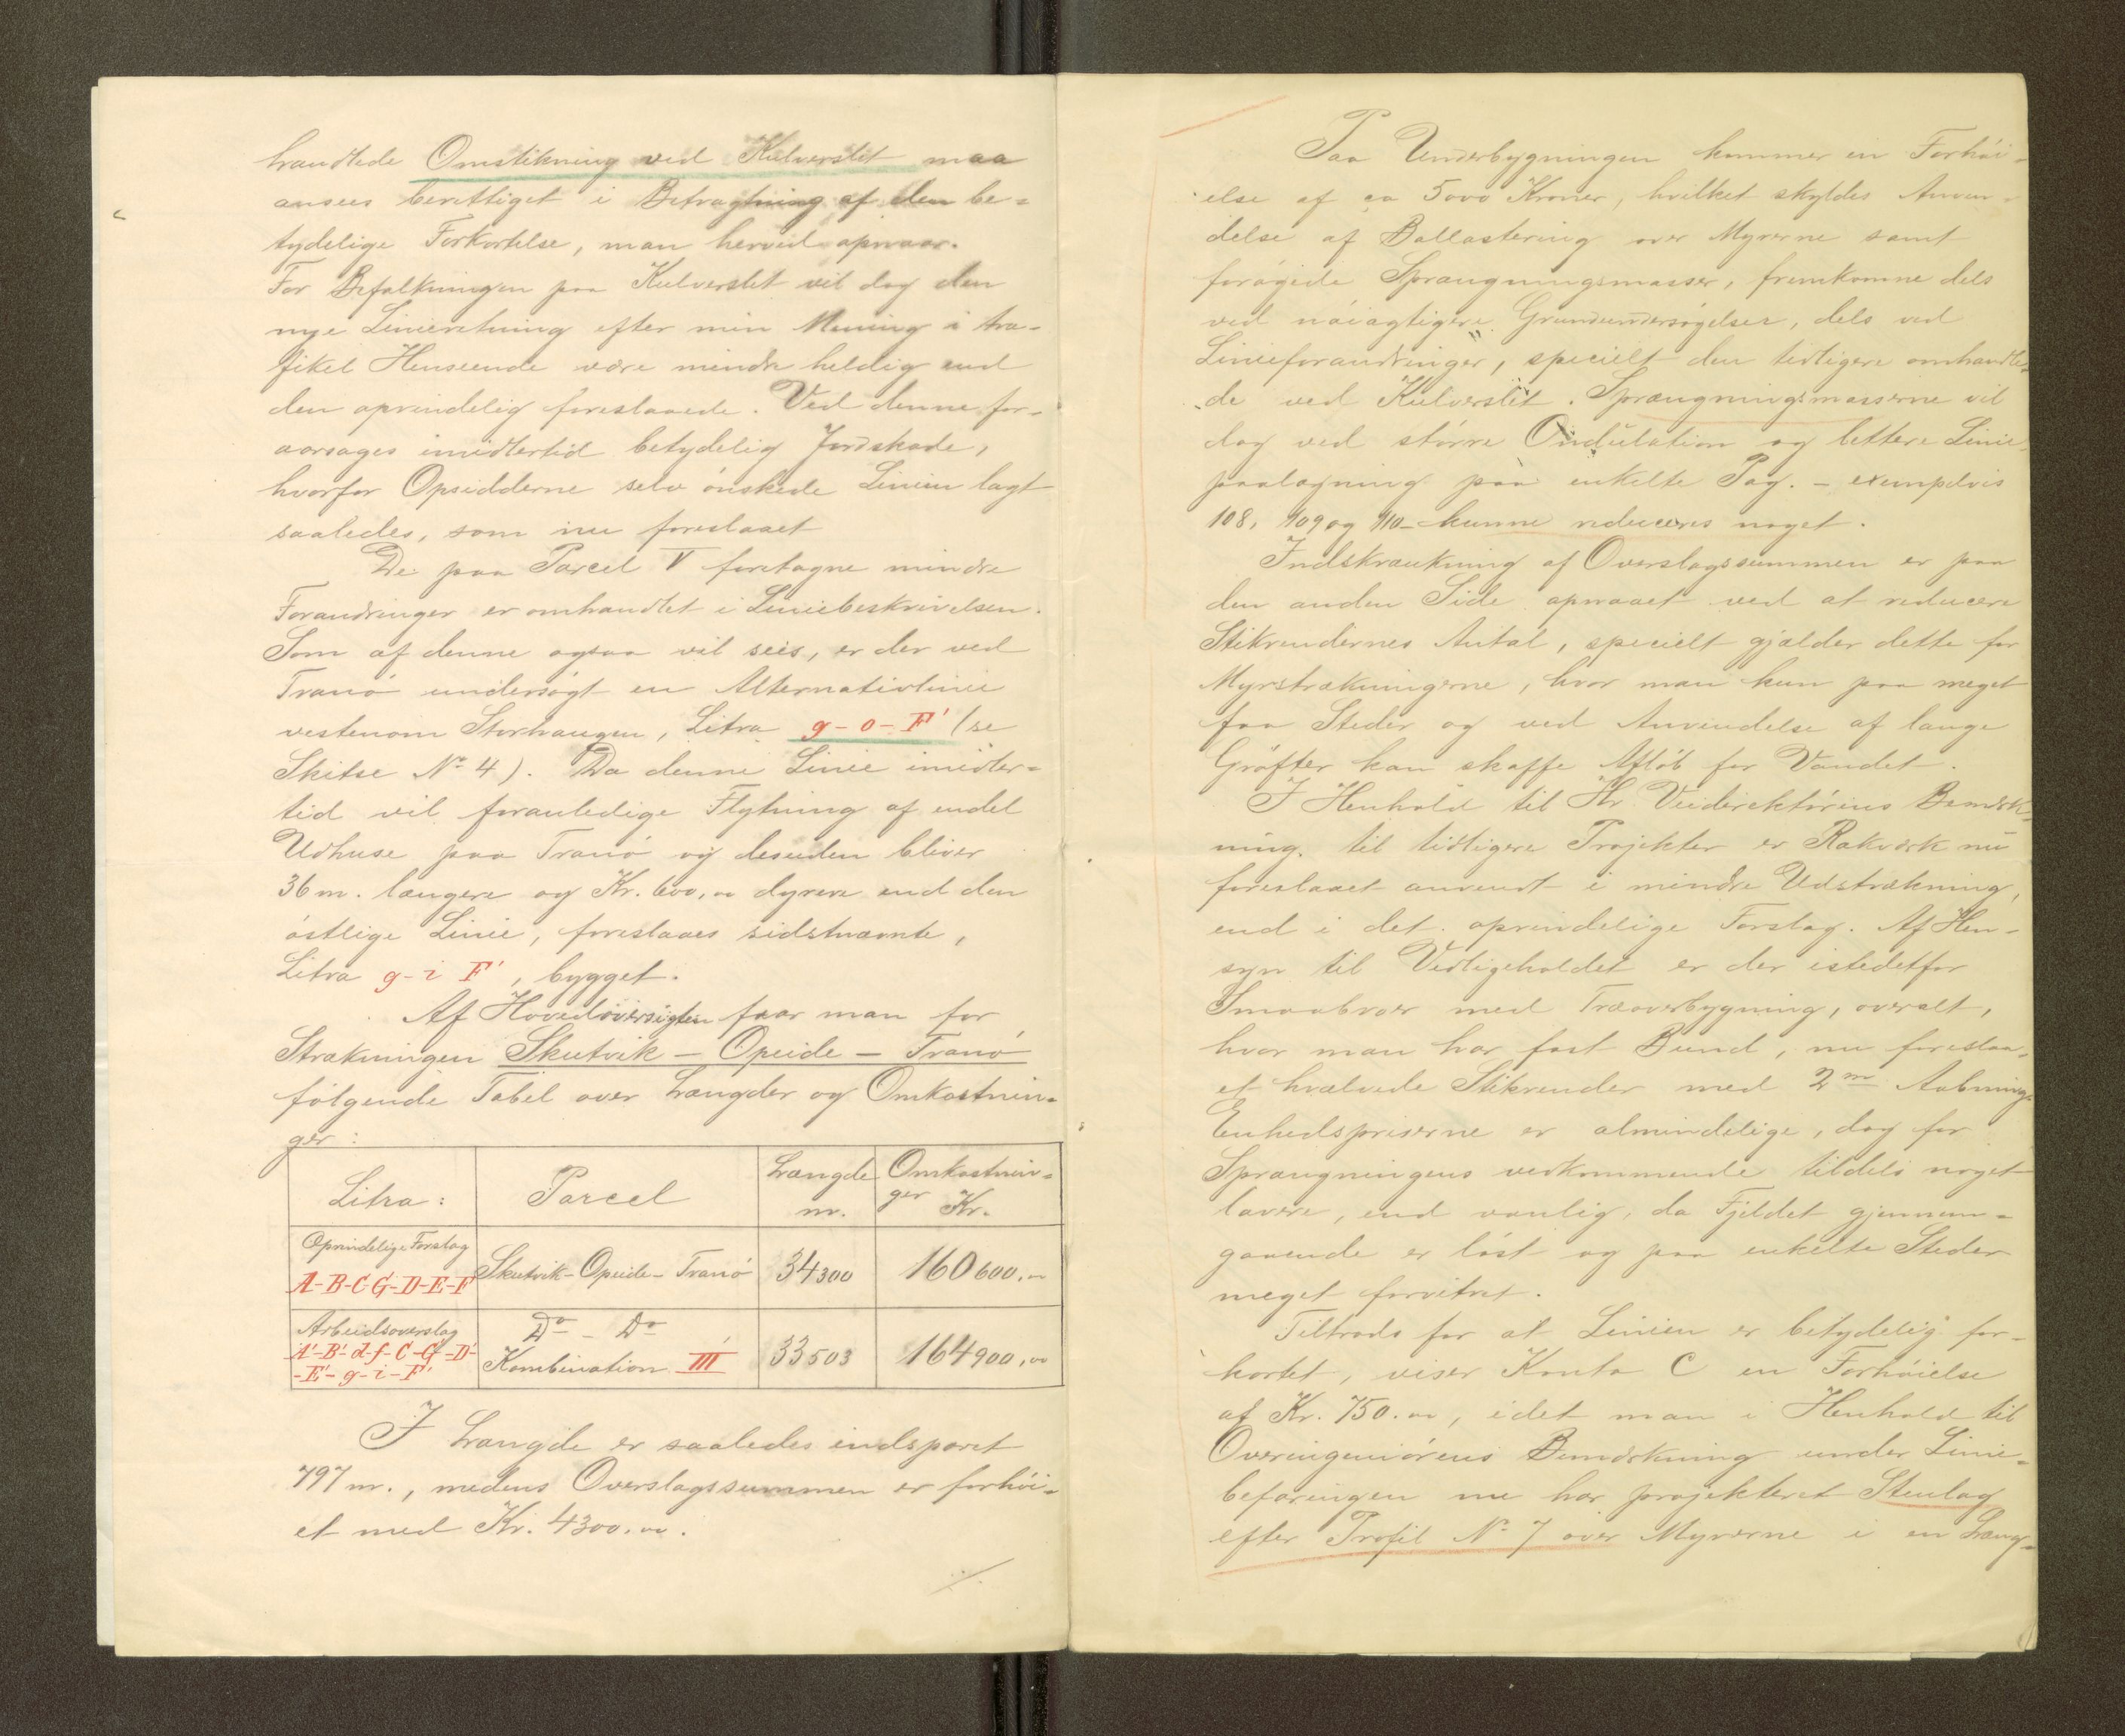 handlede Omstikning ved Kulverslet maa
ansees berettiget i Betragtning af den be=
tydelige Forkortelse, man herved opnaar.
For Befolkningen paa Kulverslet vil dog den
nye Linieretning efter min Mening i tra-
fikel Henseende være mindre heldig end
den oprindelig foreslaaede. Ved denne for-
aarsages imidlertid betydelig Jordskade,
hvorfor Opsidderne selv ønskede Linien lagt
saaledes, som nu foreslaaet
De paa Parcel V foretagne mindre
Forandringer er omhandlet i Liniebeskrivelsen.
Som af denne ogsaa vil sees, er der ved
Tranø undersøgt en Alternativlinie
vestenom Storhaugen, Litra g-o-F' (se
Skitse No 4). Da denne Linie imidler=
tid vil foranledige Flytning af endel
Udhuse paa Tranø og desuden bliver
36 m. længere og Kr. 600,00 dyrere end den
østlige Linie, foreslaaes sidstnævnte,
Litra g-i F', bygget.
Af Hovedoversigten faar man for
Strækningen Skutvik - Opeide - Tranø
følgende Tabel over Længder og Omkostnin=
ger:
Litra: Parcel Længde m. Omkostnin=ger Kr.
Oprindelige Forslag
A-B-C-G-D-E-F Skutvik-Opeide-Tranø 34300 160600,00
Arbeidsoverslag Do - Do
A'-B'-d-f-C'-G'-D'
-E'-g-i-F' Kombination III 33503 164900,00
I Længde er saaledes indsparet
797 m., medens Overslagssummen er forhøi=
et med Kr. 4300,00.
./.
Paa Underbygningen kommer en Forhøi-
else af ca 5000 Kroner, hvilket skyldes Anven-
delse af Ballastering over Myrerne samt
forøgede Sprængningsmasser, fremkomne dels
ved nøiagtigere Grundundersøgelser, dels ved
Linieforandringer, specielt den tidligere omhandle=
de ved Kulverslet. Sprængningsmasserne vil
dog ved større Ondulation og lettere Linie
paalægning paa enkelte Pag. - exempelvis
108, 109 og 110 - kunne reduceres noget.
Indskrænkning af Overslagssummen er paa
den anden Side opnaaet ved at reducere
Stikrendernes Antal, specielt gjælder dette for
Myrstrækningerne, hvor man kun paa meget
faa Steder og ved Anvendelse af lange
Grøfter kan skaffe Afløb for Vandet.
I Henhold til Hr. Veidirektørens Bemærk=
ning til tidligere Projekter er Rækværk nu
foreslaaet anvendt i mindre Udstrækning,
end i det oprindelige Forslag. Af Hen-
syn til Vedligeholdet er der istedetfor
Smaabroer med Træoverbygning, overalt,
hvor man har fast Bund, nu foreslaa-
et hvælvede Stikrender med 2m Aabning.
Enhedspriserne er almindelige, dog for
Sprængningens vedkommende tildels noget
lavere, end vanlig, da Fjeldet gjennem=
gaaende er løst og paa enkelte Steder
meget forvitret.
Tiltrods for at Linien er betydelig for-
kortet, viser Konto C en Forhøielse
af Kr. 750.00, idet man i Henhold til
Overingeniørens Bemærkning under Linie=
befaringen nu har projekteret Stenlag
efter Profil No 7 over Myrerne i en Læng=